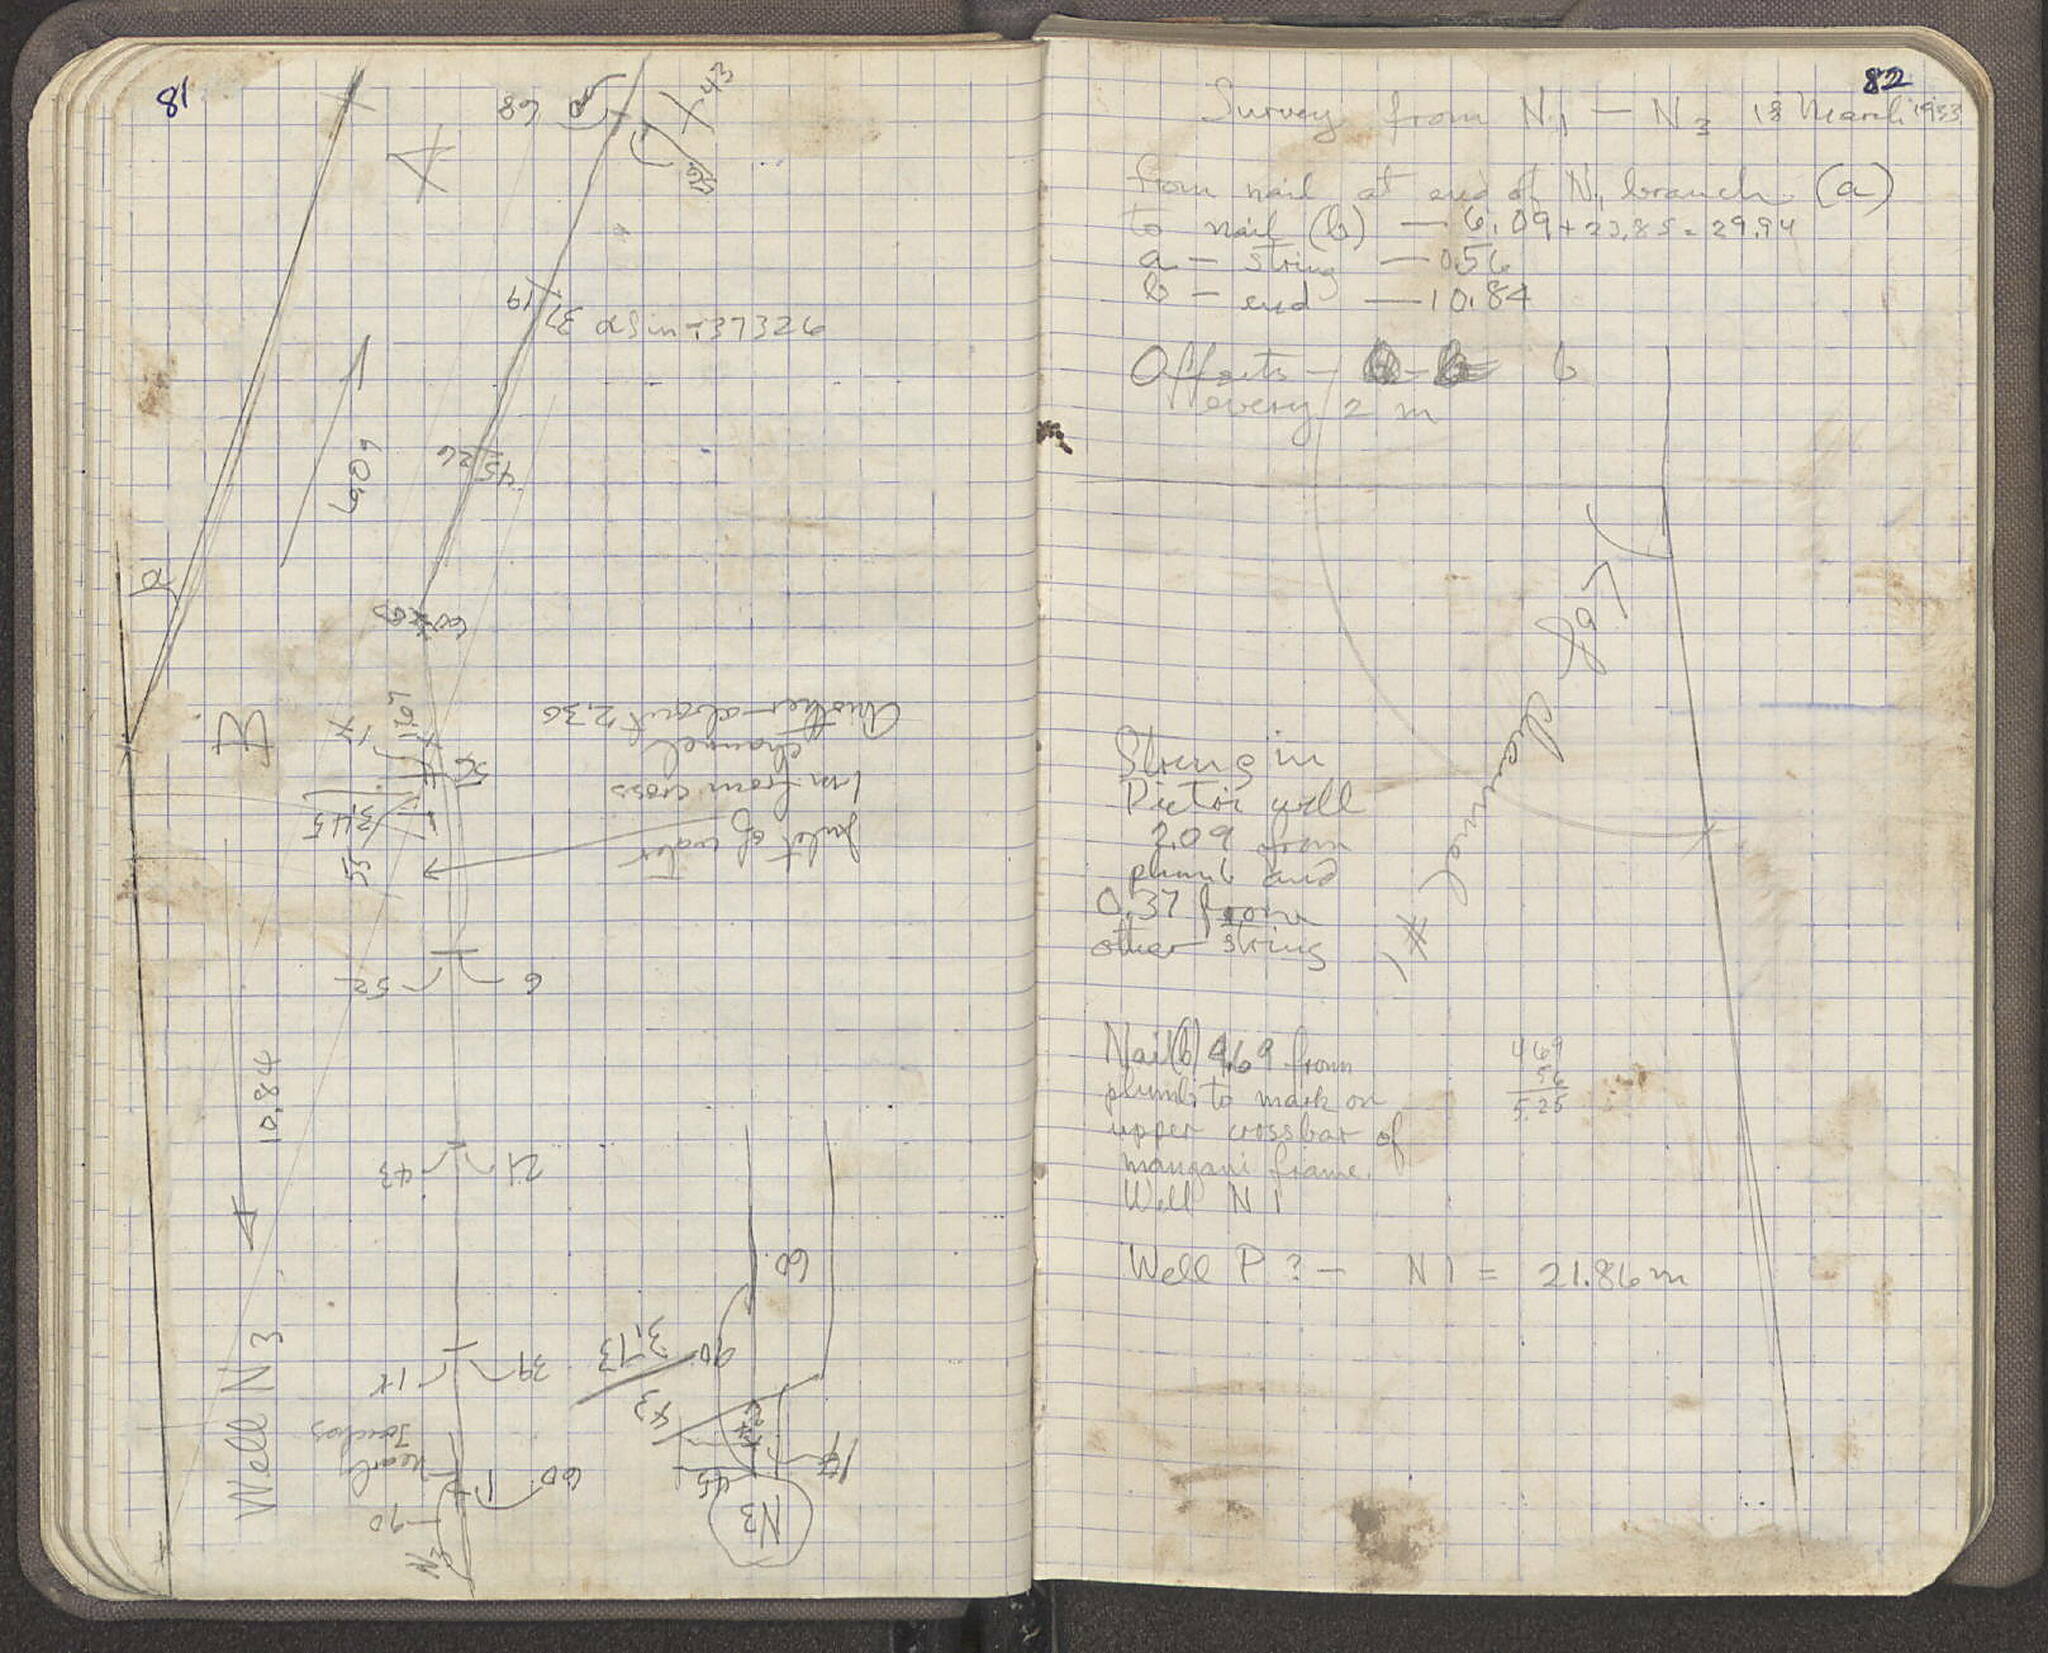 81
68
43
56
19
37
α sin = .37326
26
45
6.09
α
60
B
17
56
3.45
55
Another about 2.30
channel
1 m from cross
Inlet of water
52
6
10.84
43
21
Well N3
18
39
nearly
Touches
90
60
N3
60
3.13
90
43
45
N3
82
Survey from N1 — N3 18 March 1933
from nail at end of N1 branch (a)
to nail (b) — 6.09 + 23.85 = 29.94
a — string — 0.56
b — end — 10.84
Offsets — b
every 2 m
Left channel
String in
Pictor well
2.09 from
plumb and
0.37 from
other string
Nail (b) 4.69 from
plumb to mark on
upper crossbar of
mangani frame.
Well N 1
4 69
56
5.25
Well P ? — N 1 = 21.86 m